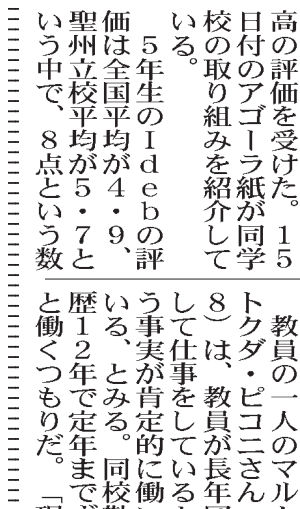 高の評価を受けた。15
日付のアゴーラ紙が同学
校の取り組みを紹介して
いる。
　5年生のIdebの評
価は全国平均が4・9、
聖州立校平均が5・7と
いう中で、8点という数
　教員の一人のマル
トクダ・ピコニさん
8）は、教員が長年
して仕事をしている
う事実が肯定的に働
いる、とみる。同校勤
歴12年で定年まで
と働くつもりだ。「現